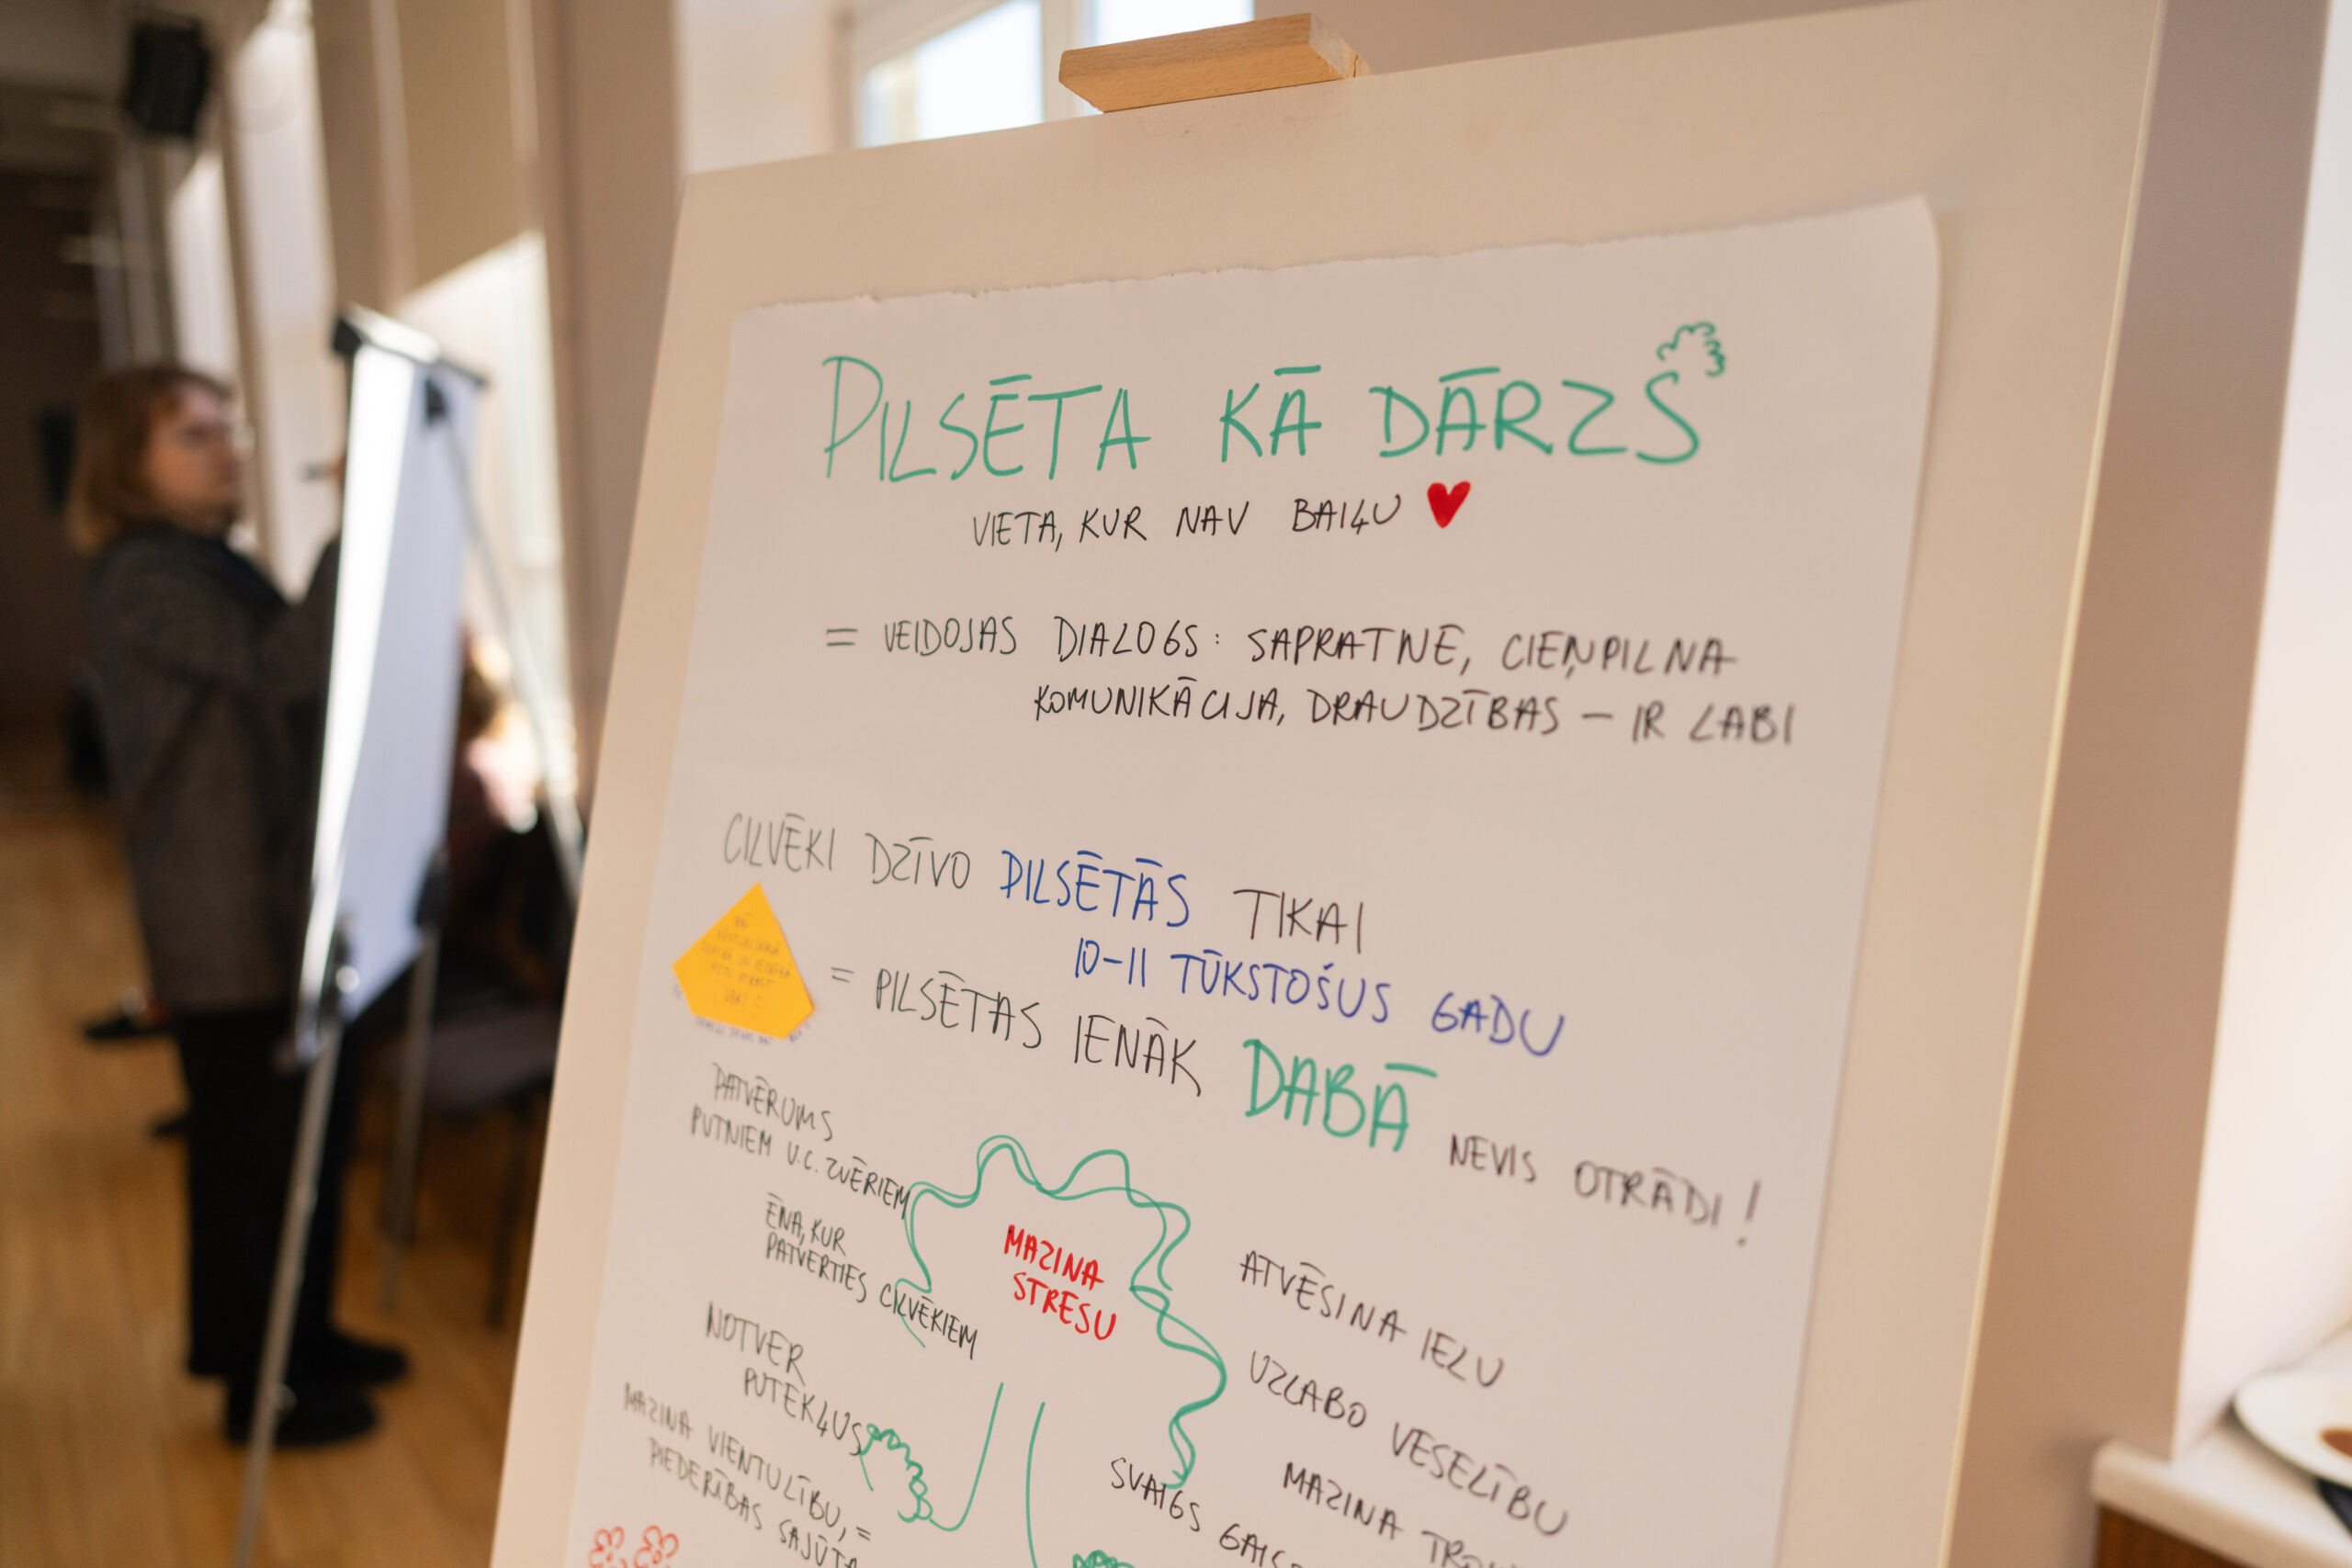 PILSĒTA KĀ DĀRZS
VIETA, KUR NAV BAIĻU
= VEIDOJAS DIALOGS: SAPRATNE, CIEŅPILNA
KOMUNIKĀCIJA, DRAUDZĪBAS – IR LABI
CILVĒKI DZĪVO PILSĒTĀS TIKAI
10-11 TŪKSTOŠUS GADU
= PILSĒTAS IENĀK DABĀ NEVIS OTRĀDI!
PATVĒRUMS
PUTNIEM U.C. ZVĒRIEM
ĒNA, KUR
PATVERTIES CILVĒKIEM
NOTVER
PUTEKĻUS
MAZINA VIENTULĪBU, =
PIEDERĪBAS SAJŪTA
MAZINA
STRESU
ATVĒSINA IELU
UZLABO VESELĪBU
MAZINA
SVAIGS